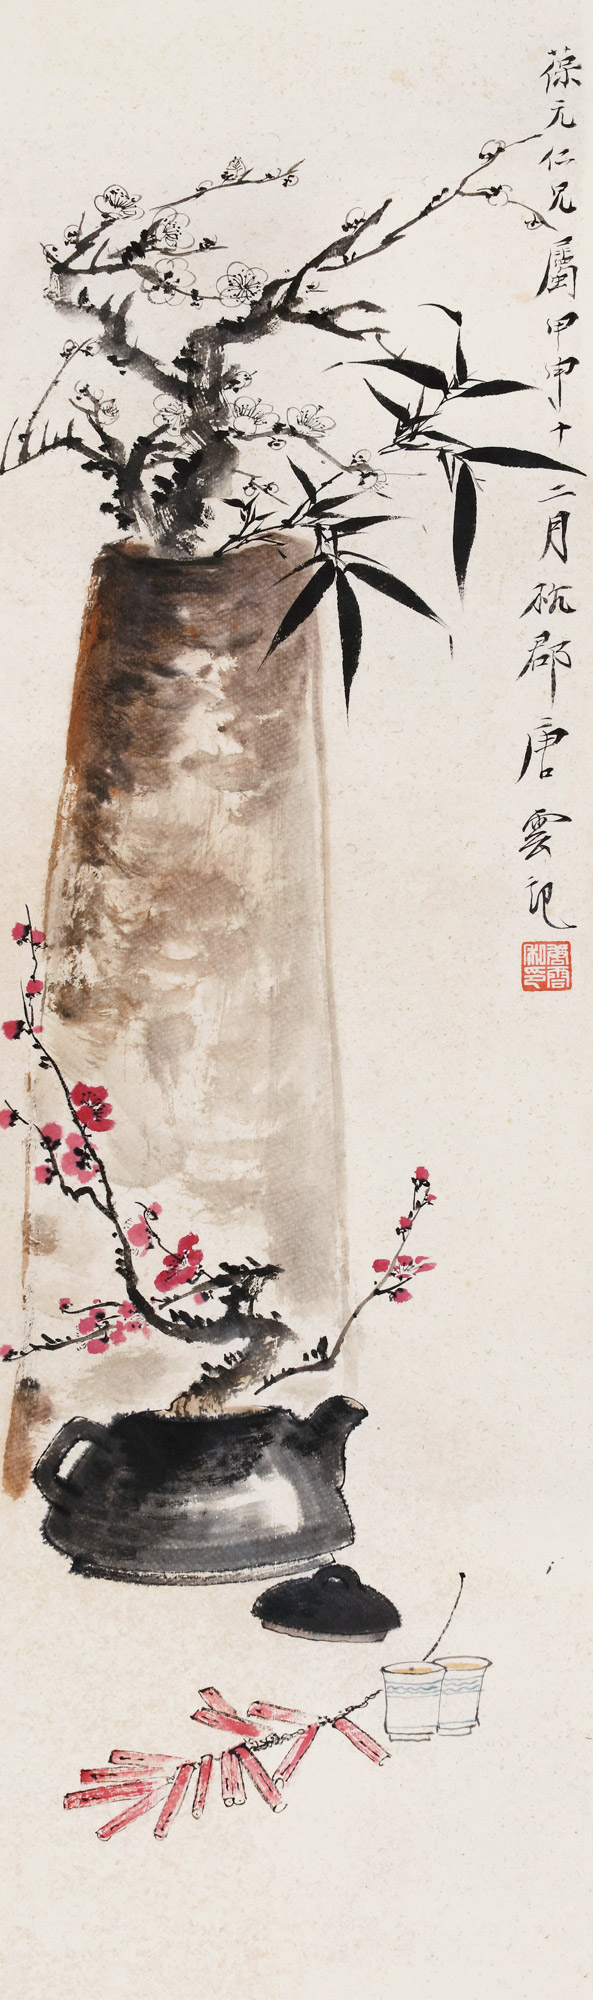 葆元仁兄屬甲申十二月杭郡唐雲記
唐雲私印